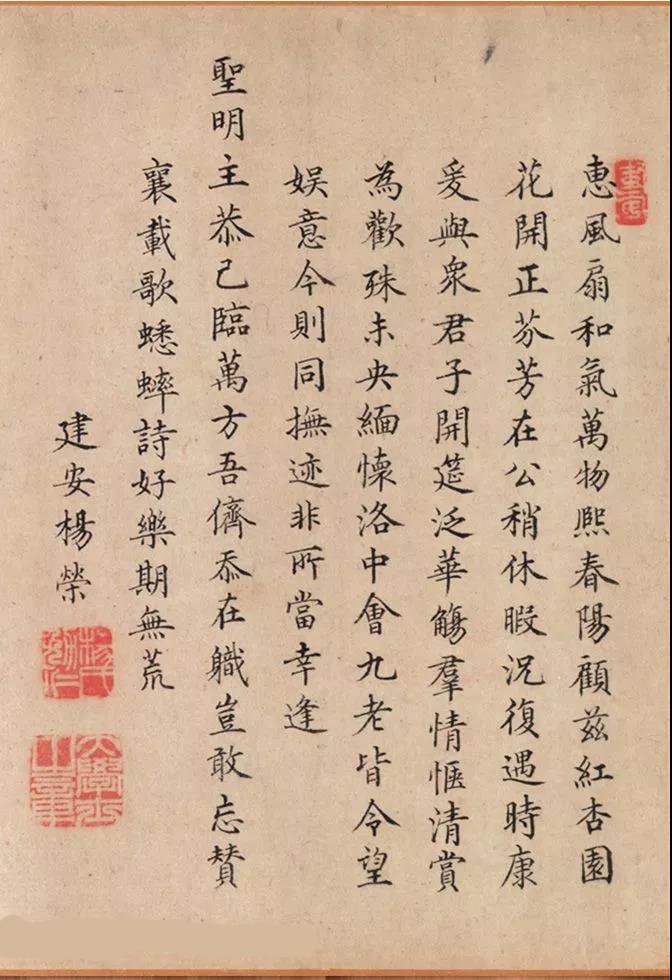 惠風扇和氣萬物熙春陽顧茲紅杏園
花開正芬芳在公稍休暇況復遇時康
爰與衆君子開筵泛華觴羣情愜清賞
為歡殊未央緬懷洛中會九老皆令望
娛意今則同撫迹非所當幸逢
聖明主恭己臨萬方吾儕忝在職豈敢忘賛
襄載歌蟋蟀詩好樂期無荒
建安楊榮
楊氏勉仁